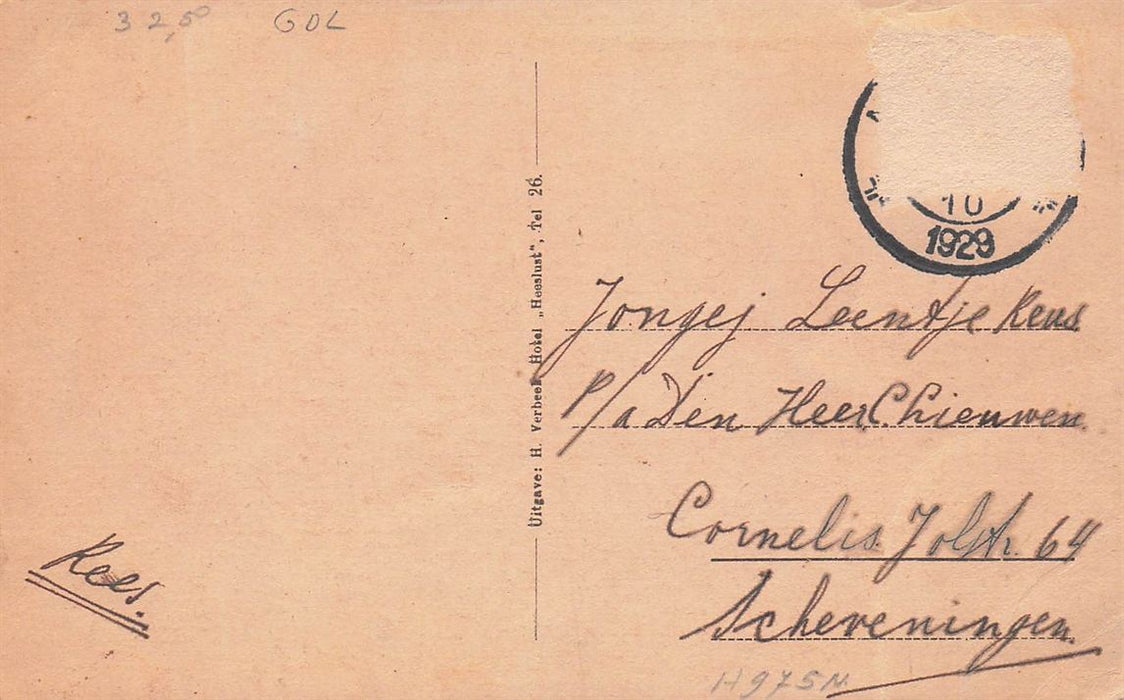 32,50 GDL
10
1929
Uitgave: H. Verbeek Hotel „Heeslust", Tel 26.
Jongej Leentje Keus
P/a Den Heer C. Lieuwen
Cornelis Jolstr. 64
Scheveningen.
Kees.
H975N